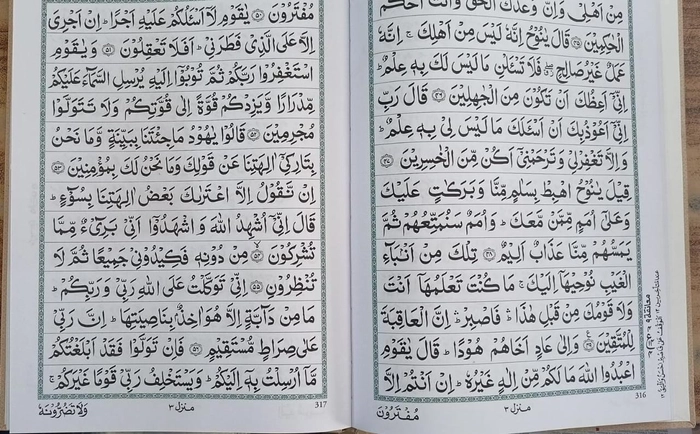 مِنْ اَهْلِیْ وَاِنَّ وَعْدَكَ الْحَقُّ وَاَنْتَ اَحْكَمُ
الْحٰكِمِیْنَ ۝۴۵ قَالَ یٰنُوْحُ اِنَّهٗ لَیْسَ مِنْ اَهْلِكَ ۚ اِنَّهٗ
عَمَلٌ غَیْرُ صَالِحٍ ۖ فَلَا تَسْـَٔلْنِ مَا لَیْسَ لَكَ بِهٖ عِلْمٌ ؕ
اِنِّیْۤ اَعِظُكَ اَنْ تَكُوْنَ مِنَ الْجٰهِلِیْنَ ۝۴۶ قَالَ رَبِّ
اِنِّیْۤ اَعُوْذُ بِكَ اَنْ اَسْـَٔلَكَ مَا لَیْسَ لِیْ بِهٖ عِلْمٌ ؕ
وَاِلَّا تَغْفِرْ لِیْ وَتَرْحَمْنِیْۤ اَكُنْ مِّنَ الْخٰسِرِیْنَ ۝۴۷
قِیْلَ یٰنُوْحُ اهْبِطْ بِسَلٰمٍ مِّنَّا وَبَرَكٰتٍ عَلَیْكَ
وَعَلٰۤی اُمَمٍ مِّمَّنْ مَّعَكَ ؕ وَاُمَمٌ سَنُمَتِّعُهُمْ ثُمَّ
یَمَسُّهُمْ مِّنَّا عَذَابٌ اَلِیْمٌ ۝۴۸ تِلْكَ مِنْ اَنْۢبَآءِ
الْغَیْبِ نُوْحِیْهَاۤ اِلَیْكَ ۚ مَا كُنْتَ تَعْلَمُهَاۤ اَنْتَ
وَلَا قَوْمُكَ مِنْ قَبْلِ هٰذَا ۛؕ فَاصْبِرْ ۛؕ اِنَّ الْعَاقِبَةَ
لِلْمُتَّقِیْنَ ۝۴۹ وَاِلٰی عَادٍ اَخَاهُمْ هُوْدًا ؕ قَالَ یٰقَوْمِ
اعْبُدُوا اللّٰهَ مَا لَكُمْ مِّنْ اِلٰهٍ غَیْرُهٗ ؕ اِنْ اَنْتُمْ اِلَّا
316
منزل ۳
مُفْتَرُوْنَ
مُفْتَرُوْنَ ۝۵۰ یٰقَوْمِ لَاۤ اَسْـَٔلُكُمْ عَلَیْهِ اَجْرًا ؕ اِنْ اَجْرِیَ
اِلَّا عَلَی الَّذِیْ فَطَرَنِیْ ؕ اَفَلَا تَعْقِلُوْنَ ۝۵۱ وَیٰقَوْمِ
اسْتَغْفِرُوْا رَبَّكُمْ ثُمَّ تُوْبُوْۤا اِلَیْهِ یُرْسِلِ السَّمَآءَ عَلَیْكُمْ
مِّدْرَارًا وَّیَزِدْكُمْ قُوَّةً اِلٰی قُوَّتِكُمْ وَلَا تَتَوَلَّوْا
مُجْرِمِیْنَ ۝۵۲ قَالُوْا یٰهُوْدُ مَا جِئْتَنَا بِبَیِّنَةٍ وَّمَا نَحْنُ
بِتَارِكِیْۤ اٰلِهَتِنَا عَنْ قَوْلِكَ وَمَا نَحْنُ لَكَ بِمُؤْمِنِیْنَ ۝۵۳
اِنْ نَّقُوْلُ اِلَّا اعْتَرٰىكَ بَعْضُ اٰلِهَتِنَا بِسُوْٓءٍ ؕ
قَالَ اِنِّیْۤ اُشْهِدُ اللّٰهَ وَاشْهَدُوْۤا اَنِّیْ بَرِیْٓءٌ مِّمَّا
تُشْرِكُوْنَ ۝۵۴ مِنْ دُوْنِهٖ فَكِیْدُوْنِیْ جَمِیْعًا ثُمَّ لَا
تُنْظِرُوْنِ ۝۵۵ اِنِّیْ تَوَكَّلْتُ عَلَی اللّٰهِ رَبِّیْ وَرَبِّكُمْ ؕ
مَا مِنْ دَآبَّةٍ اِلَّا هُوَ اٰخِذٌۢ بِنَاصِیَتِهَا ؕ اِنَّ رَبِّیْ
عَلٰی صِرَاطٍ مُّسْتَقِیْمٍ ۝۵۶ فَاِنْ تَوَلَّوْا فَقَدْ اَبْلَغْتُكُمْ
مَّاۤ اُرْسِلْتُ بِهٖۤ اِلَیْكُمْ ؕ وَیَسْتَخْلِفُ رَبِّیْ قَوْمًا غَیْرَكُمْ ۚ
317
منزل ۳
وَلَا تَضُرُّوْنَهٗ